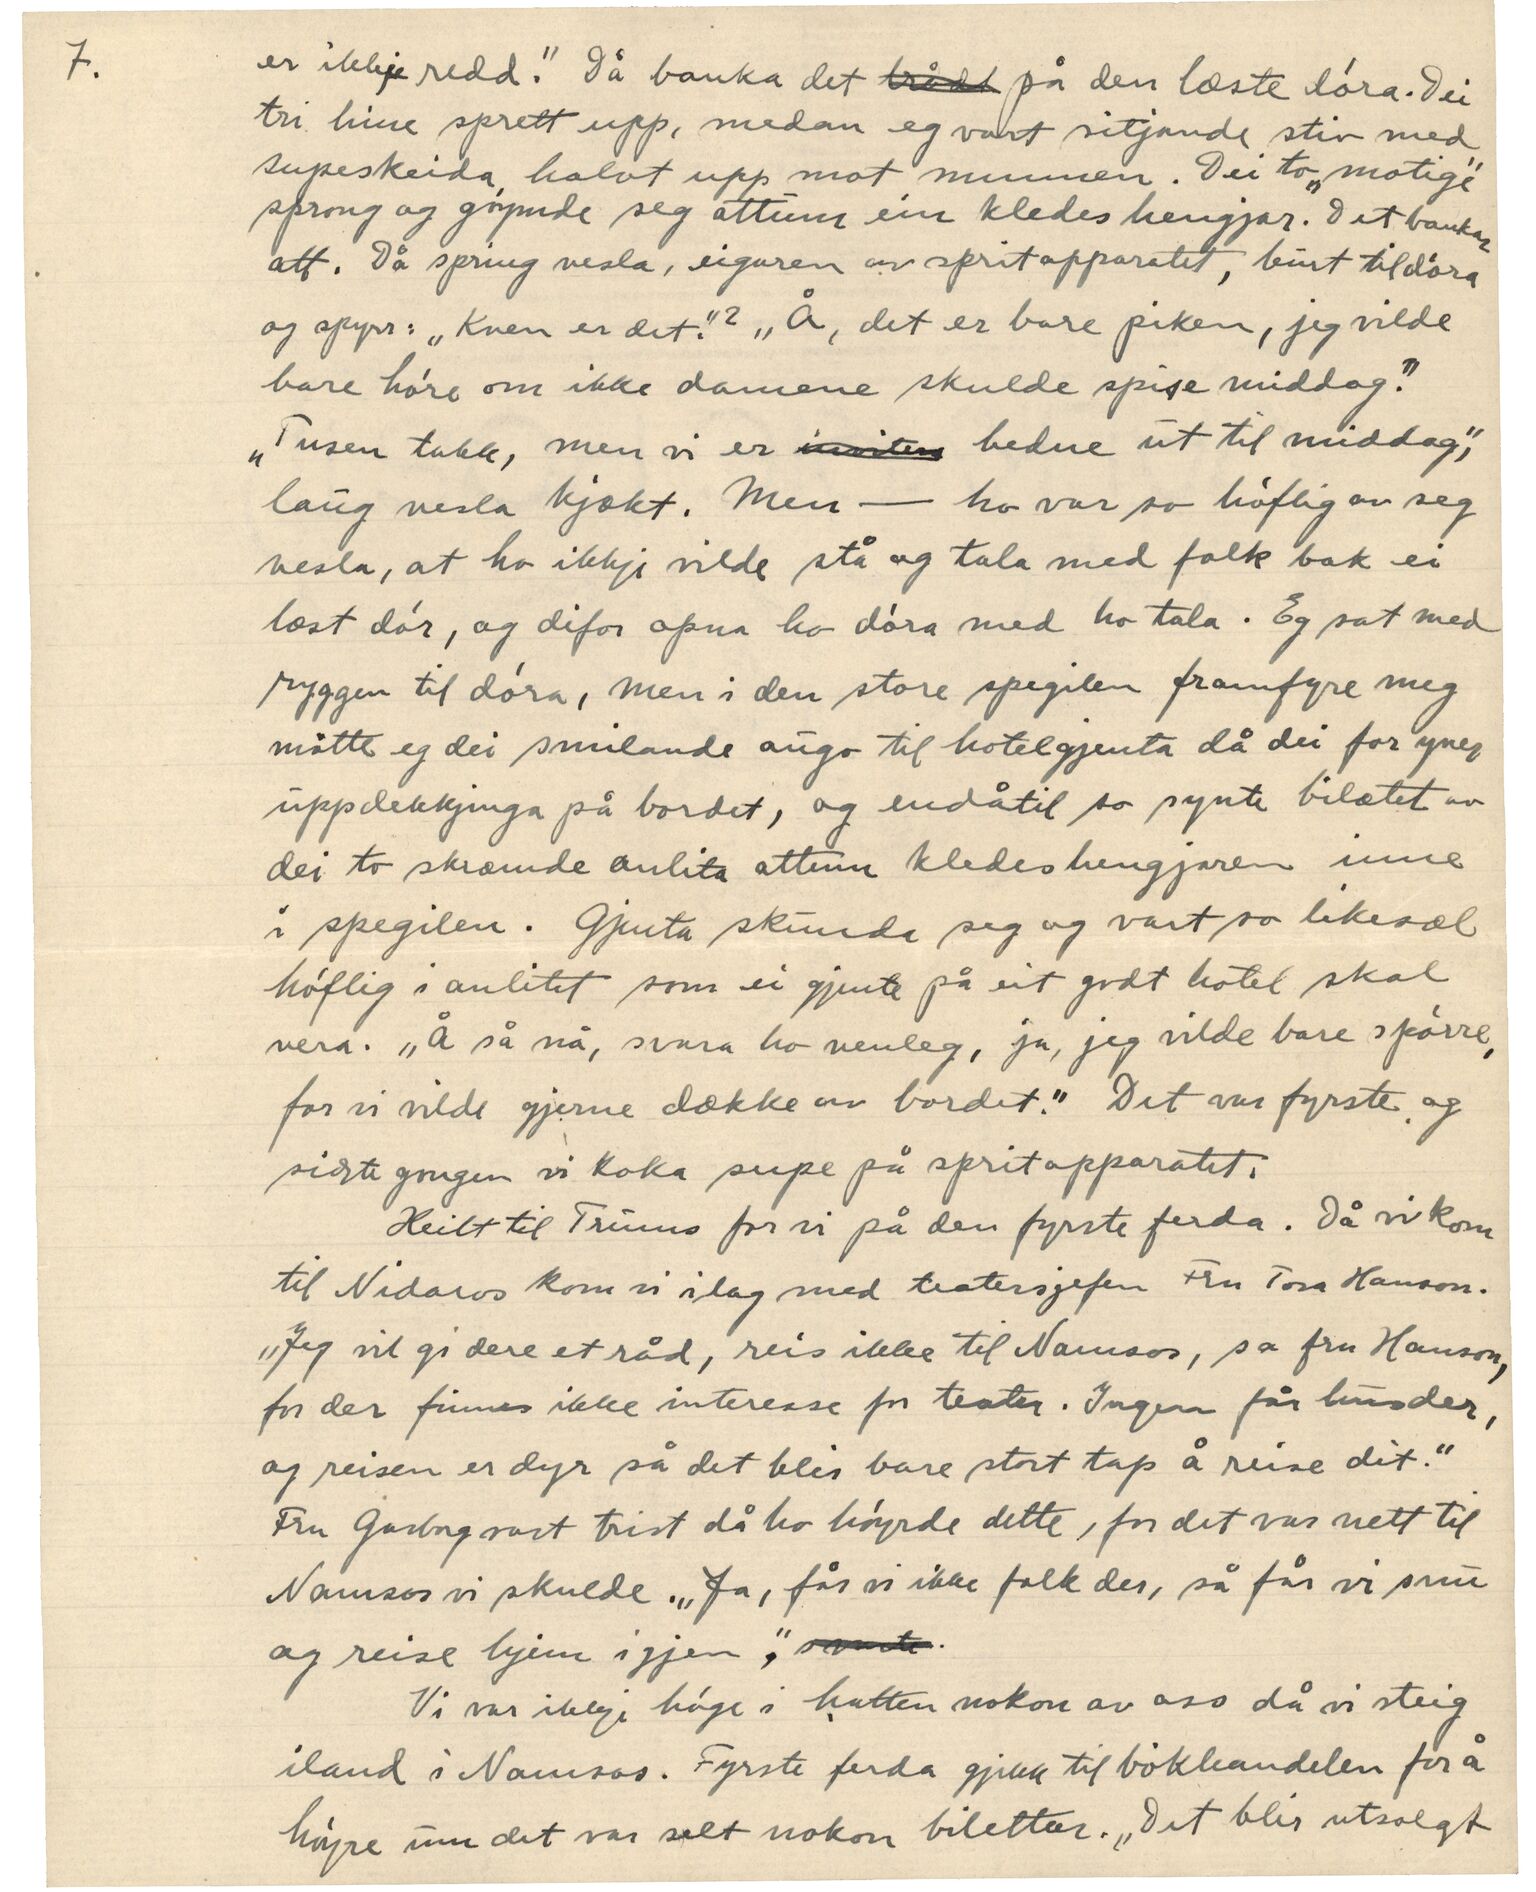 7.
er ikkje redd." Då banka det brådt på den læste dóra. Dei
tri hine sprett upp, medan eg vart sitjande stiv med
supeskeida halvt upp mot munnen. Dei to „motige"
sprong og góymde seg attum ein kledeshengjar. Det bankar
att. Då spring vesla, eigaren av spritapparatet, burt til dóra
og spyrr: „Kven er det."? „Å, det er bare piken, jeg vilde
bare hóre om ikke damene skulde spise middag?"
„Tusen takk, men vi er bedne ut til middag",
laug vesla kjækt. Men — ho var so hóflig av seg
vesla, at ho ikkje vilde stå og tala med folk bak ei
læst dór, og difor opna ho dóra med ho tala. Eg sat med
ryggen til dóra, men i den store spegilen framfyre meg
møtte eg dei smilande augo til hotelgjenta då dei for yver
uppdekkjinga på bordet, og endåtil so synte bilætet av
dei to skræmde anlita attum kledeshengjaren inne
i spegilen. Gjenta skunda seg og vart so likesæl
hóflig i anlitet som ei gjente på eit godt hotel skal
vera. „Å så nå, svara ho venleg, ja, jeg vilde bare spórre,
for vi vilde gjerne dække av bordet." Det var fyrste og
sidste gongen vi koka supe på spritapparatet.
Heilt til Trums for vi på den fyrste ferda. Då vi kom
til Nidaros kom vi ilag med teatersjefen Fru Tora Hanson.
„Jeg vil gi dere et råd, reis ikke til Namsos, sa fru Hanson,
for der finnes ikke interesse for teater. Ingen får hus der,
og reisen er dyr så det blir bare stort tap å reise dit."
Fru Garborg vart trist då ho hóyrde dette, for det var nett til
Namsos vi skulde. „Ja, får vi ikke folk der, så får vi snu
og reise hjem igjen", svarte.
Vi var ikkje høge i hatten nokon av oss då vi steig
iland i Namsos. Fyrste ferda gjekk til bokhandelen for å
hóyre um det var selt nokon bilettar. „Det blir utsolgt